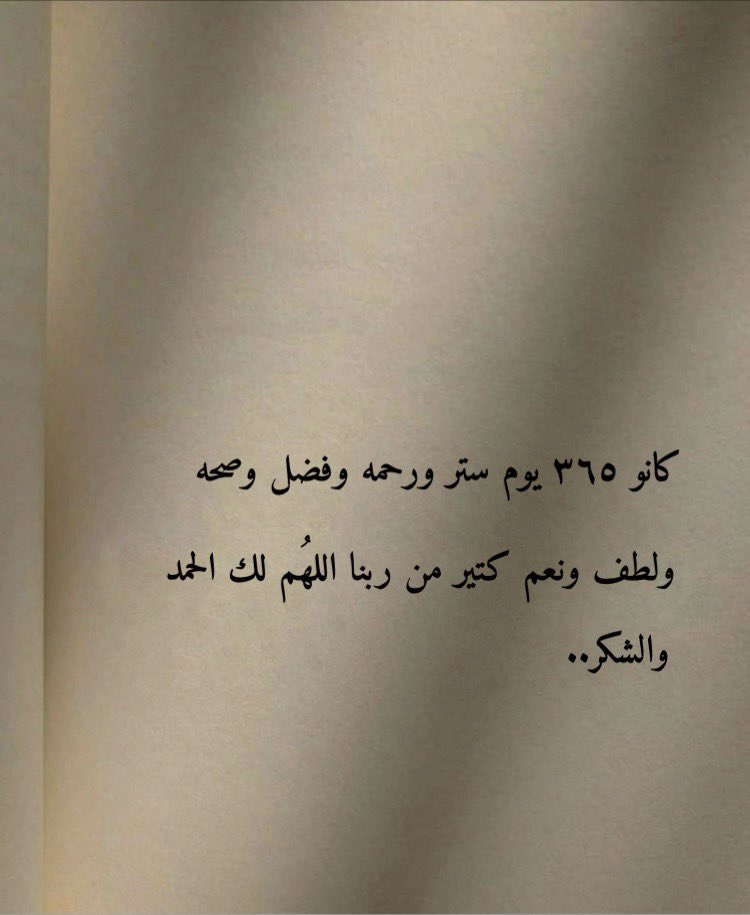 كانو ٣٦٥ يوم ستر ورحمه وفضل وصحه
ولطف ونعم كتير من ربنا اللهُم لك الحمد
والشكر..